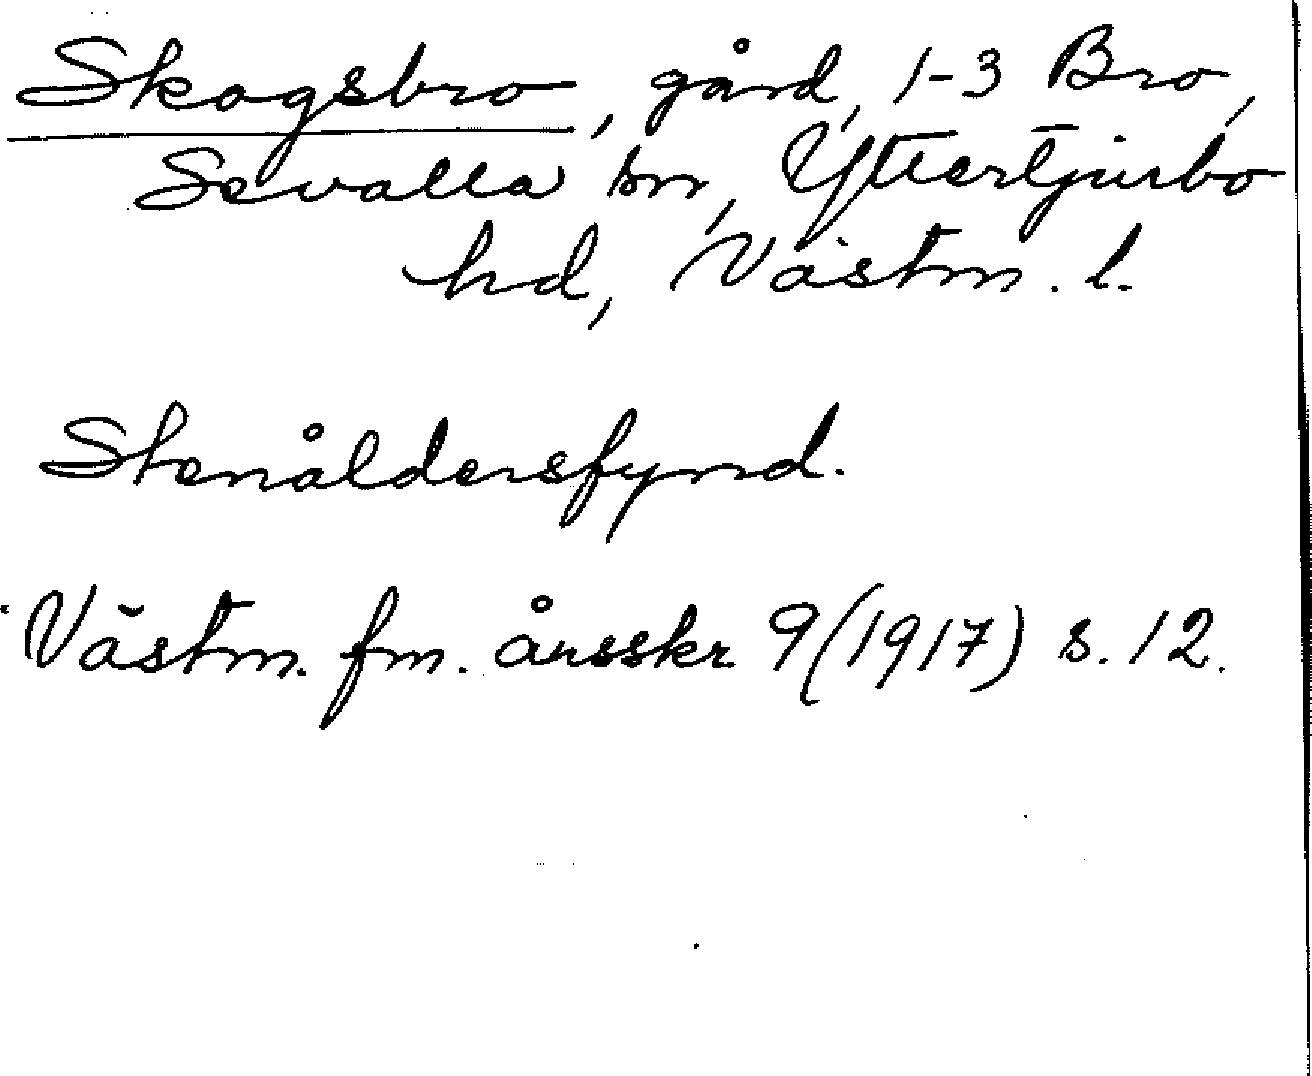 Skogsbro, gård, 1-3 Bro,
Sevalla sn, Yttertjurbo
hd, Västm. l.
Stenåldersfynd.
Västm. fm. årsskr 9 (1917) s. 12.